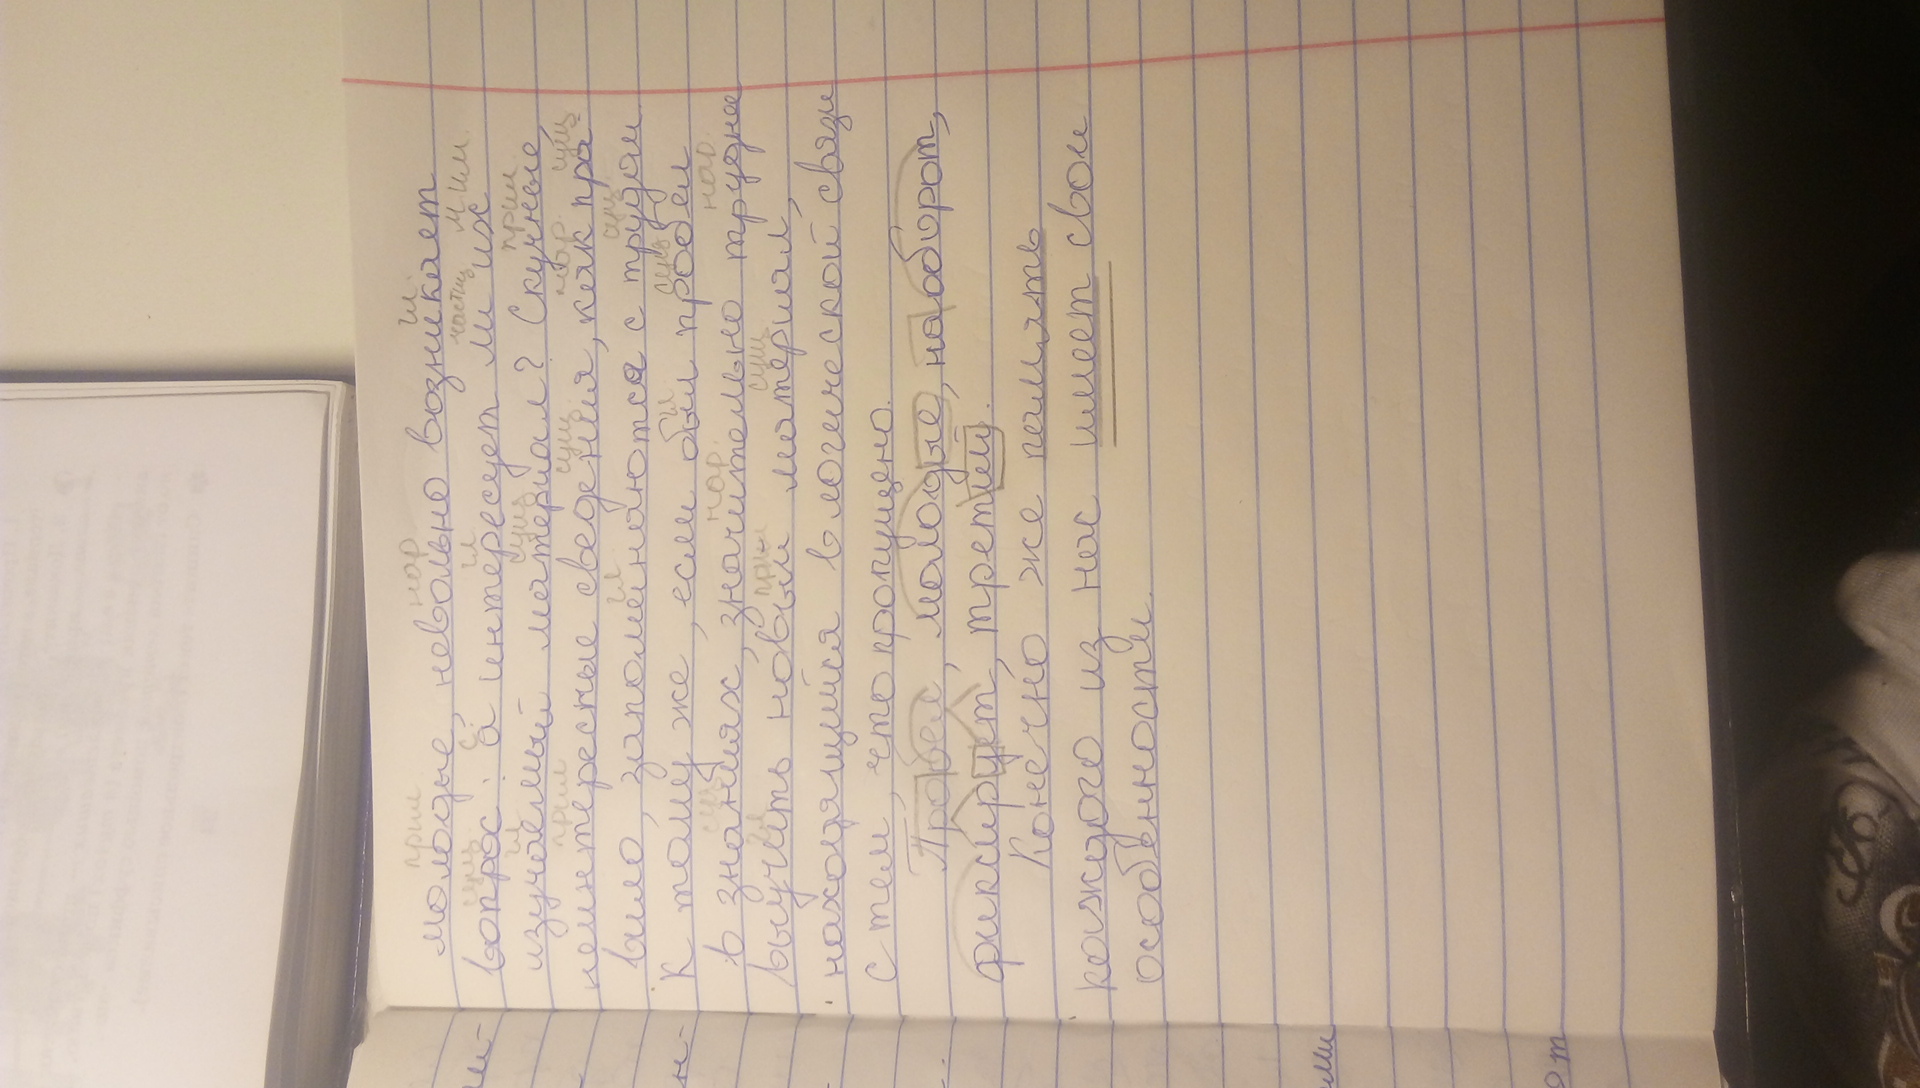 прил. нар. гл.
молодые, невольно возникает
сущ. с. гл. частиц. м. им.
вопрос: а интересует ли их
гл. сущ. прил.
изучаемый материал? Скучные,
прил. сущ. нар. сущ.
неинтересные сведения, как пра-
гл. сущ.
вило, запоминаются с трудом.
гл. сущ.
К тому же, если был пробел
сущ. нар. нар.
в знаниях, значительно труднее
гл. прил. сущ.
выучить новый материал,
находящийся в логической связи
с тем, что пропущено.
Пробел, молодые, наоборот,
фиксирует, третий.
Конечно же память
каждого из нас имеет свои
особенности.
ми
от